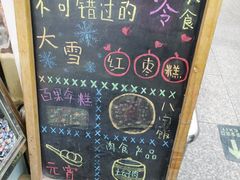 不可错过的
冷食
大雪
红枣糕
百果年糕
八宝饭
元宵
肉食产品